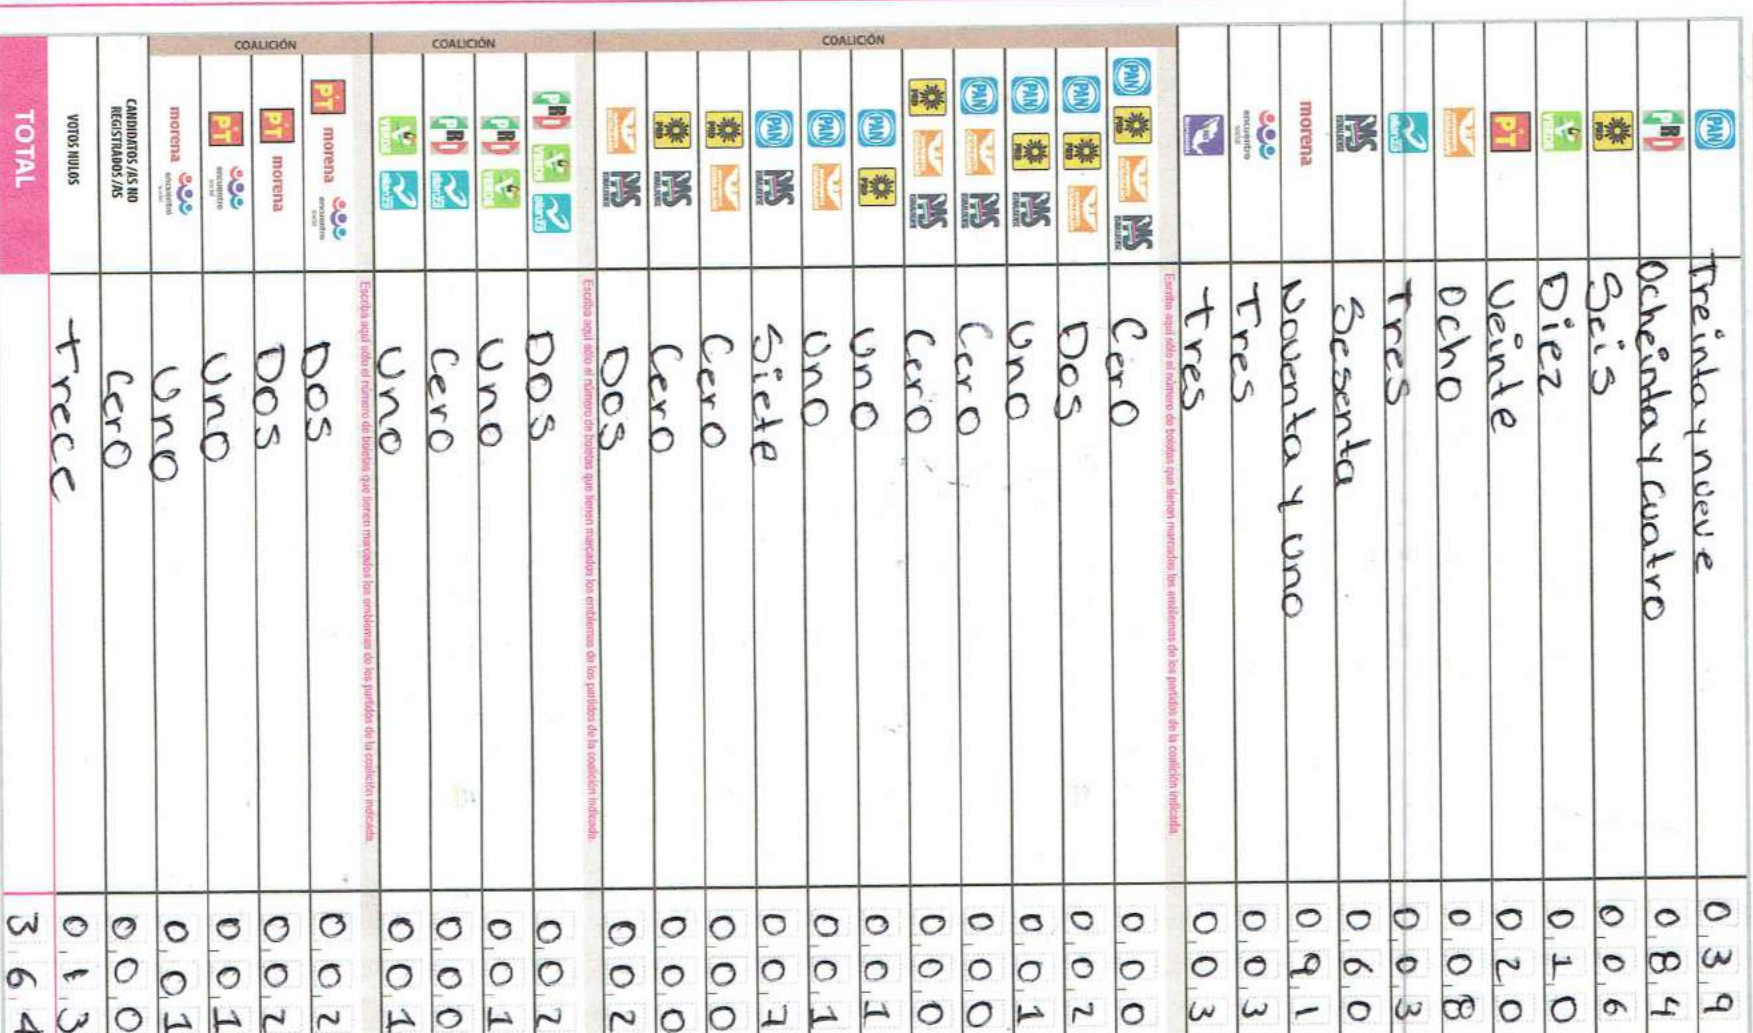 PAN Treinta y nueve 0 3 9
PRI Ocheinta y cuatro 0 8 4
PRD Seis 0 0 6
VERDE Diez 0 1 0
PT Veinte 0 2 0
Ocho 0 0 8
alianza Tres 0 0 3
PMS Sesenta 0 6 0
morena Noventa y uno 0 9 1
encuentro social Tres 0 0 3
tres 0 0 3
COALICIÓN
Escriba aquí sólo el número de boletas que tienen marcados los emblemas de los partidos de la coalición indicada.
PAN PRD PMS Cero 0 0 0
PAN PRD Dos 0 0 2
PAN PRD PMS Uno 0 0 1
PAN PMS Cero 0 0 0
PRD PMS Cero 0 0 0
PAN PRD Uno 0 0 1
PAN Uno 0 0 1
PAN PMS Siete 0 0 7
PRD Cero 0 0 0
PRD PMS Cero 0 0 0
PMS Dos 0 0 2
COALICIÓN
Escriba aquí sólo el número de boletas que tienen marcados los emblemas de los partidos de la coalición indicada.
PRI VERDE alianza Dos 0 0 2
PRI VERDE Uno 0 0 1
PRI alianza Cero 0 0 0
VERDE alianza Uno 0 0 1
COALICIÓN
Escriba aquí sólo el número de boletas que tienen marcados los emblemas de los partidos de la coalición indicada.
PT morena encuentro social Dos 0 0 2
PT morena Dos 0 0 2
PT encuentro social Uno 0 0 1
morena encuentro social Uno 0 0 1
CANDIDATOS /AS NO REGISTRADOS /AS Cero 0 0 0
VOTOS NULOS trece 0 1 3
TOTAL 3 6 4